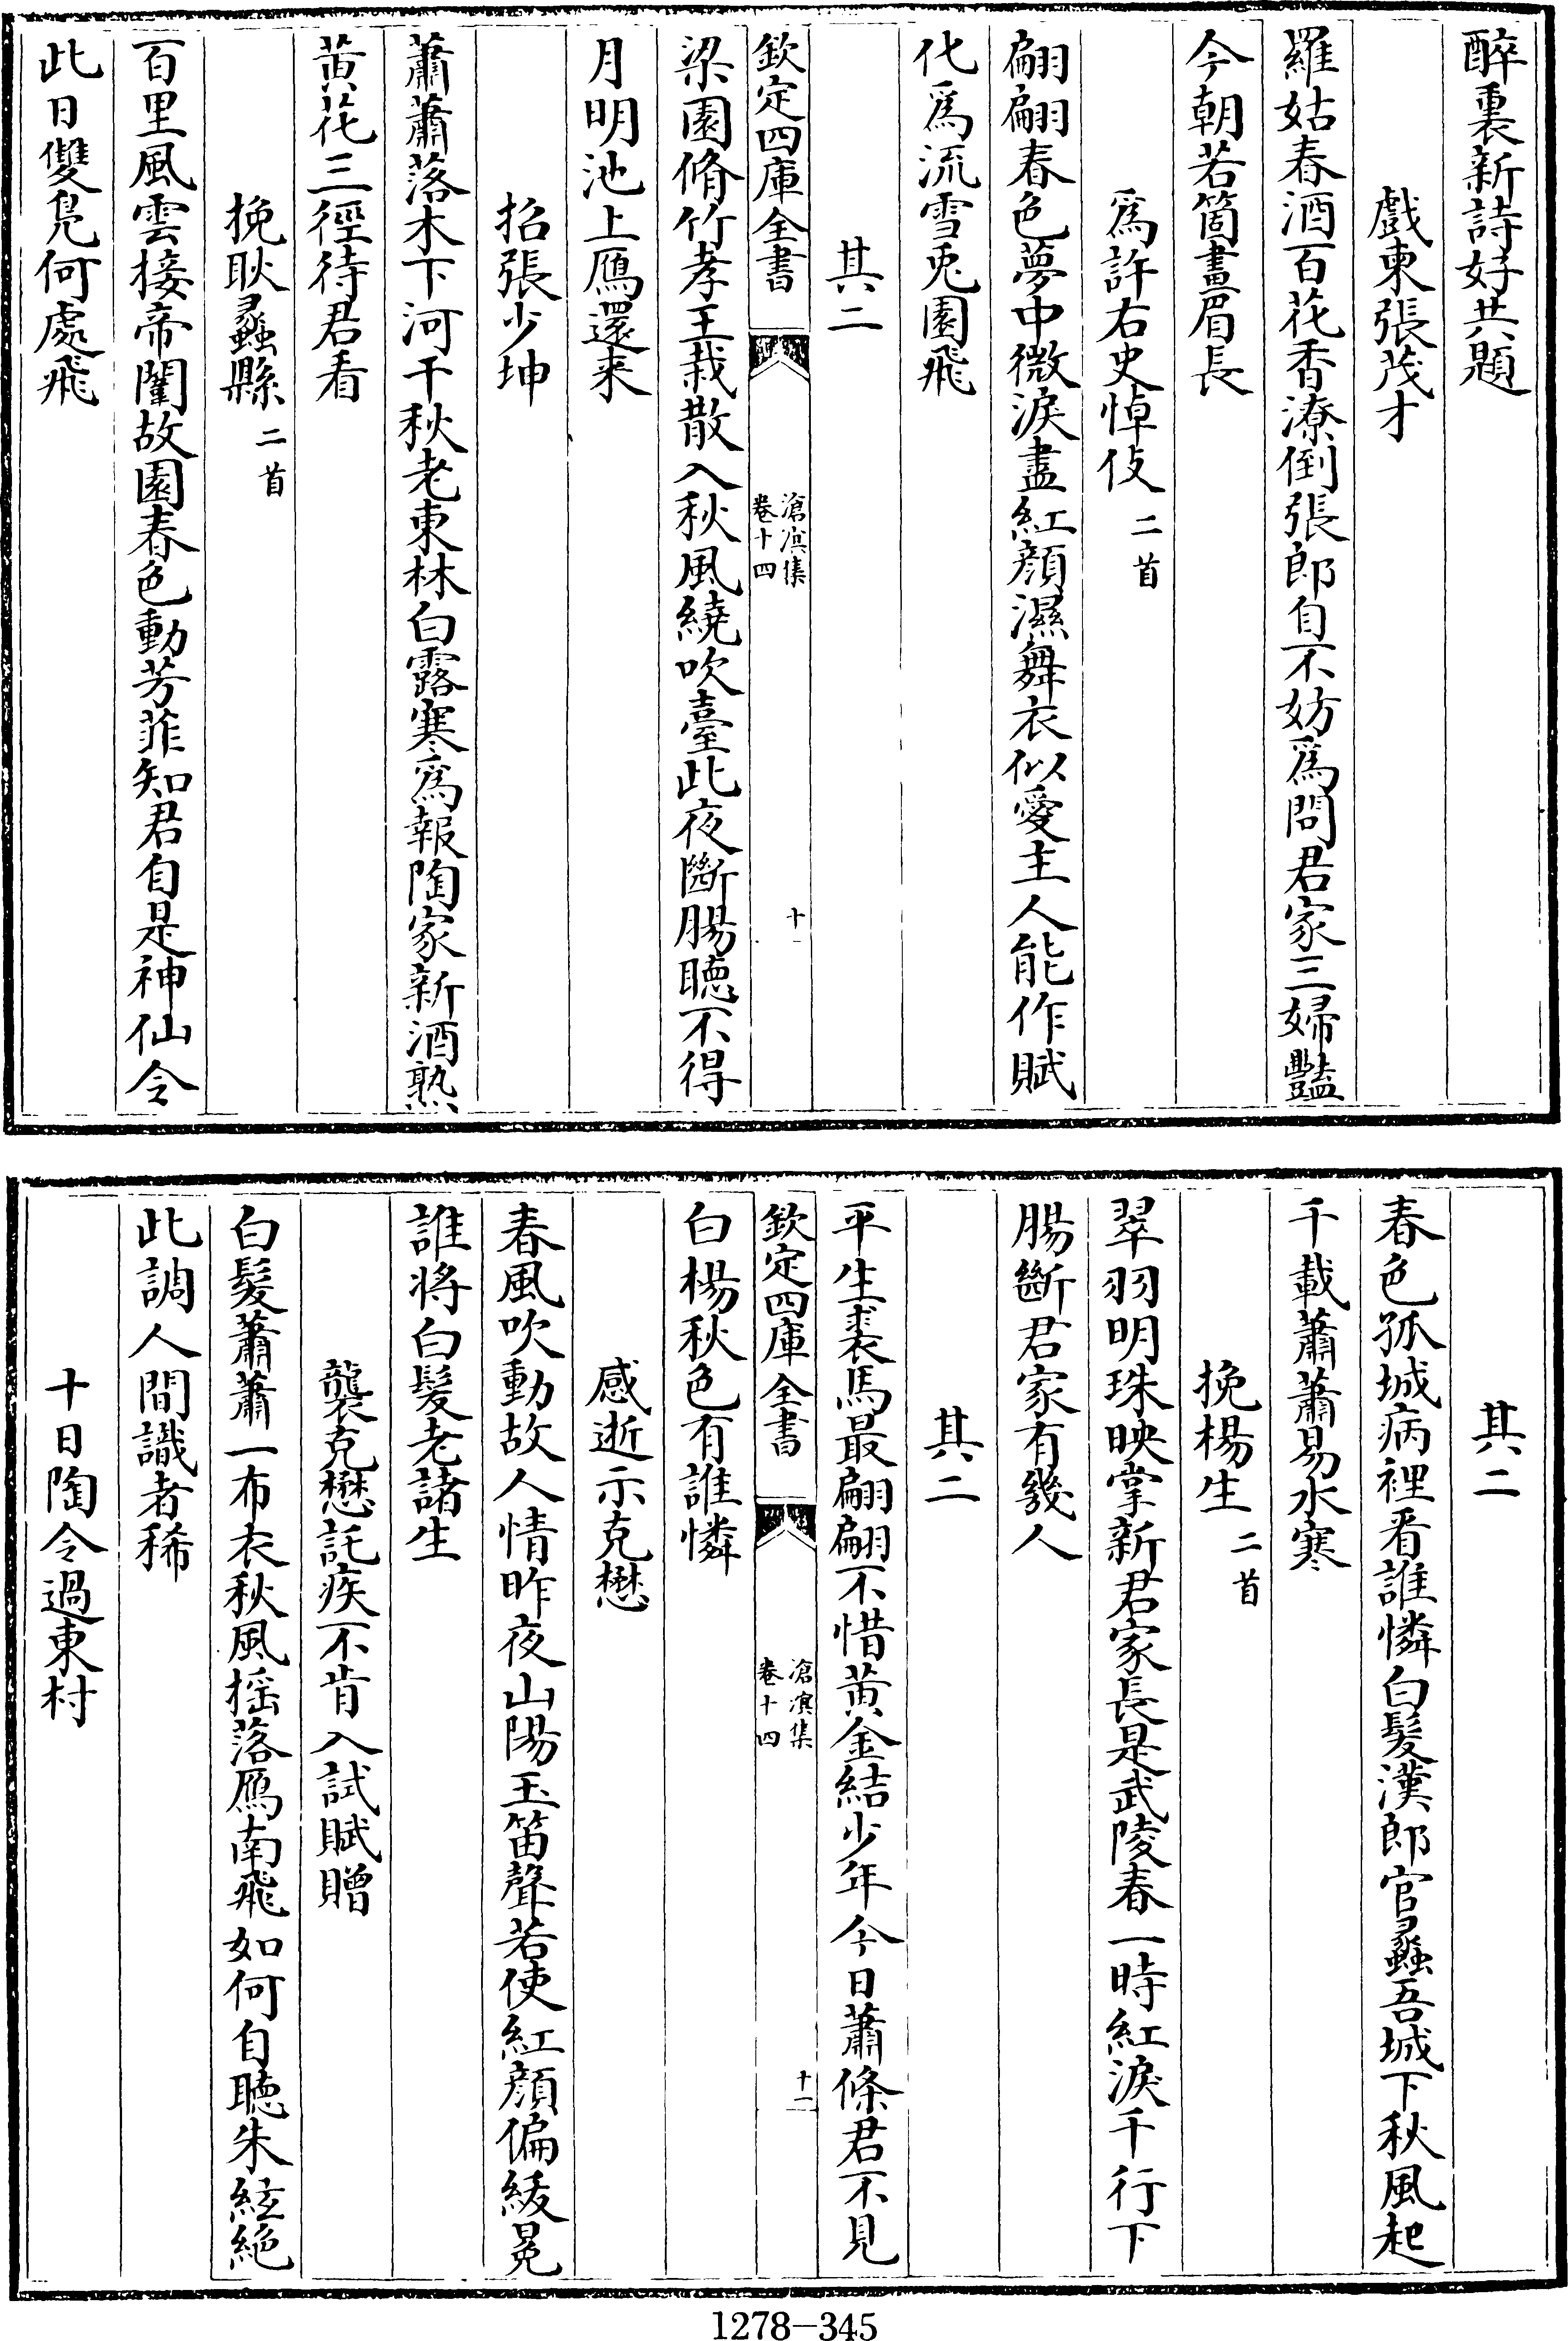 醉裏新詩好共題
戲柬張茂才
羅姑春酒百花香潦倒張郎自不妨爲問君家三婦豔
今朝若箇畫眉長
爲許右史悼伎二首
翩翩春色夢中微淚盡紅顔濕舞衣似愛主人能作賦
化爲流雪兎園飛
其二
欽定四庫全書
滄溟集
卷十四
十
梁園脩竹孝王栽散入秋風繞吹臺此夜斷腸聽不得
月明池上鴈還来
招張少坤
蕭蕭落木下河干秋老東林白露寒爲報陶家新酒熟
黄花三徑待君看
挽耿蠡縣二首
百里風雲接帝閽故園春色動芳菲知君自是神仙令
此日雙鳬何處飛
其二
春色孤城病裡看誰憐白髮漢郎官蠡吾城下秋風起
千載蕭蕭易水寒
挽楊生二首
翠羽明珠映掌新君家長是武陵春一時紅淚千行下
腸斷君家有幾人
其二
平生裘馬最翩翩不惜黄金結少年今日蕭條君不見
欽定四庫全書
滄溟集
卷十四
十一
白楊秋色有誰憐
感逝示克懋
春風吹動故人情昨夜山陽玉笛聲若使紅顔偏綬冕
誰將白髮老諸生
襲克懋託疾不肯入試賦贈
白髮蕭蕭一布衣秋風揺落鴈南飛如何自聽朱絃絶
此調人間識者稀
十日陶令過東村
1278—345